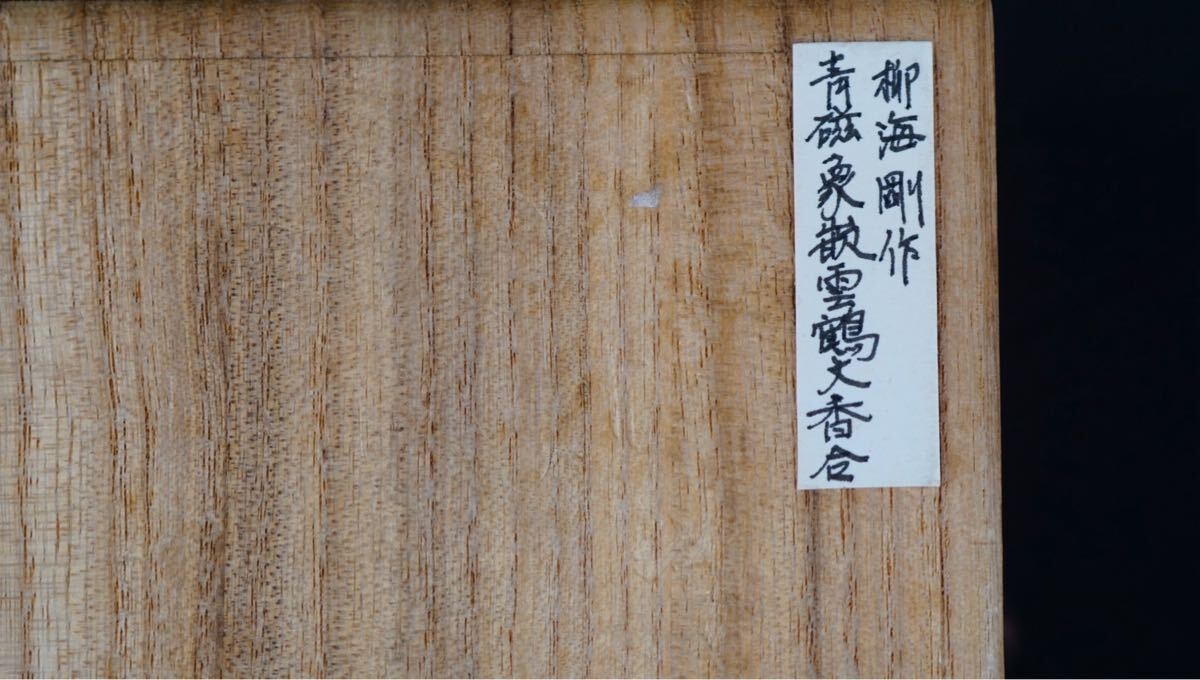 柳海剛作
青磁象嵌雲鶴文香合